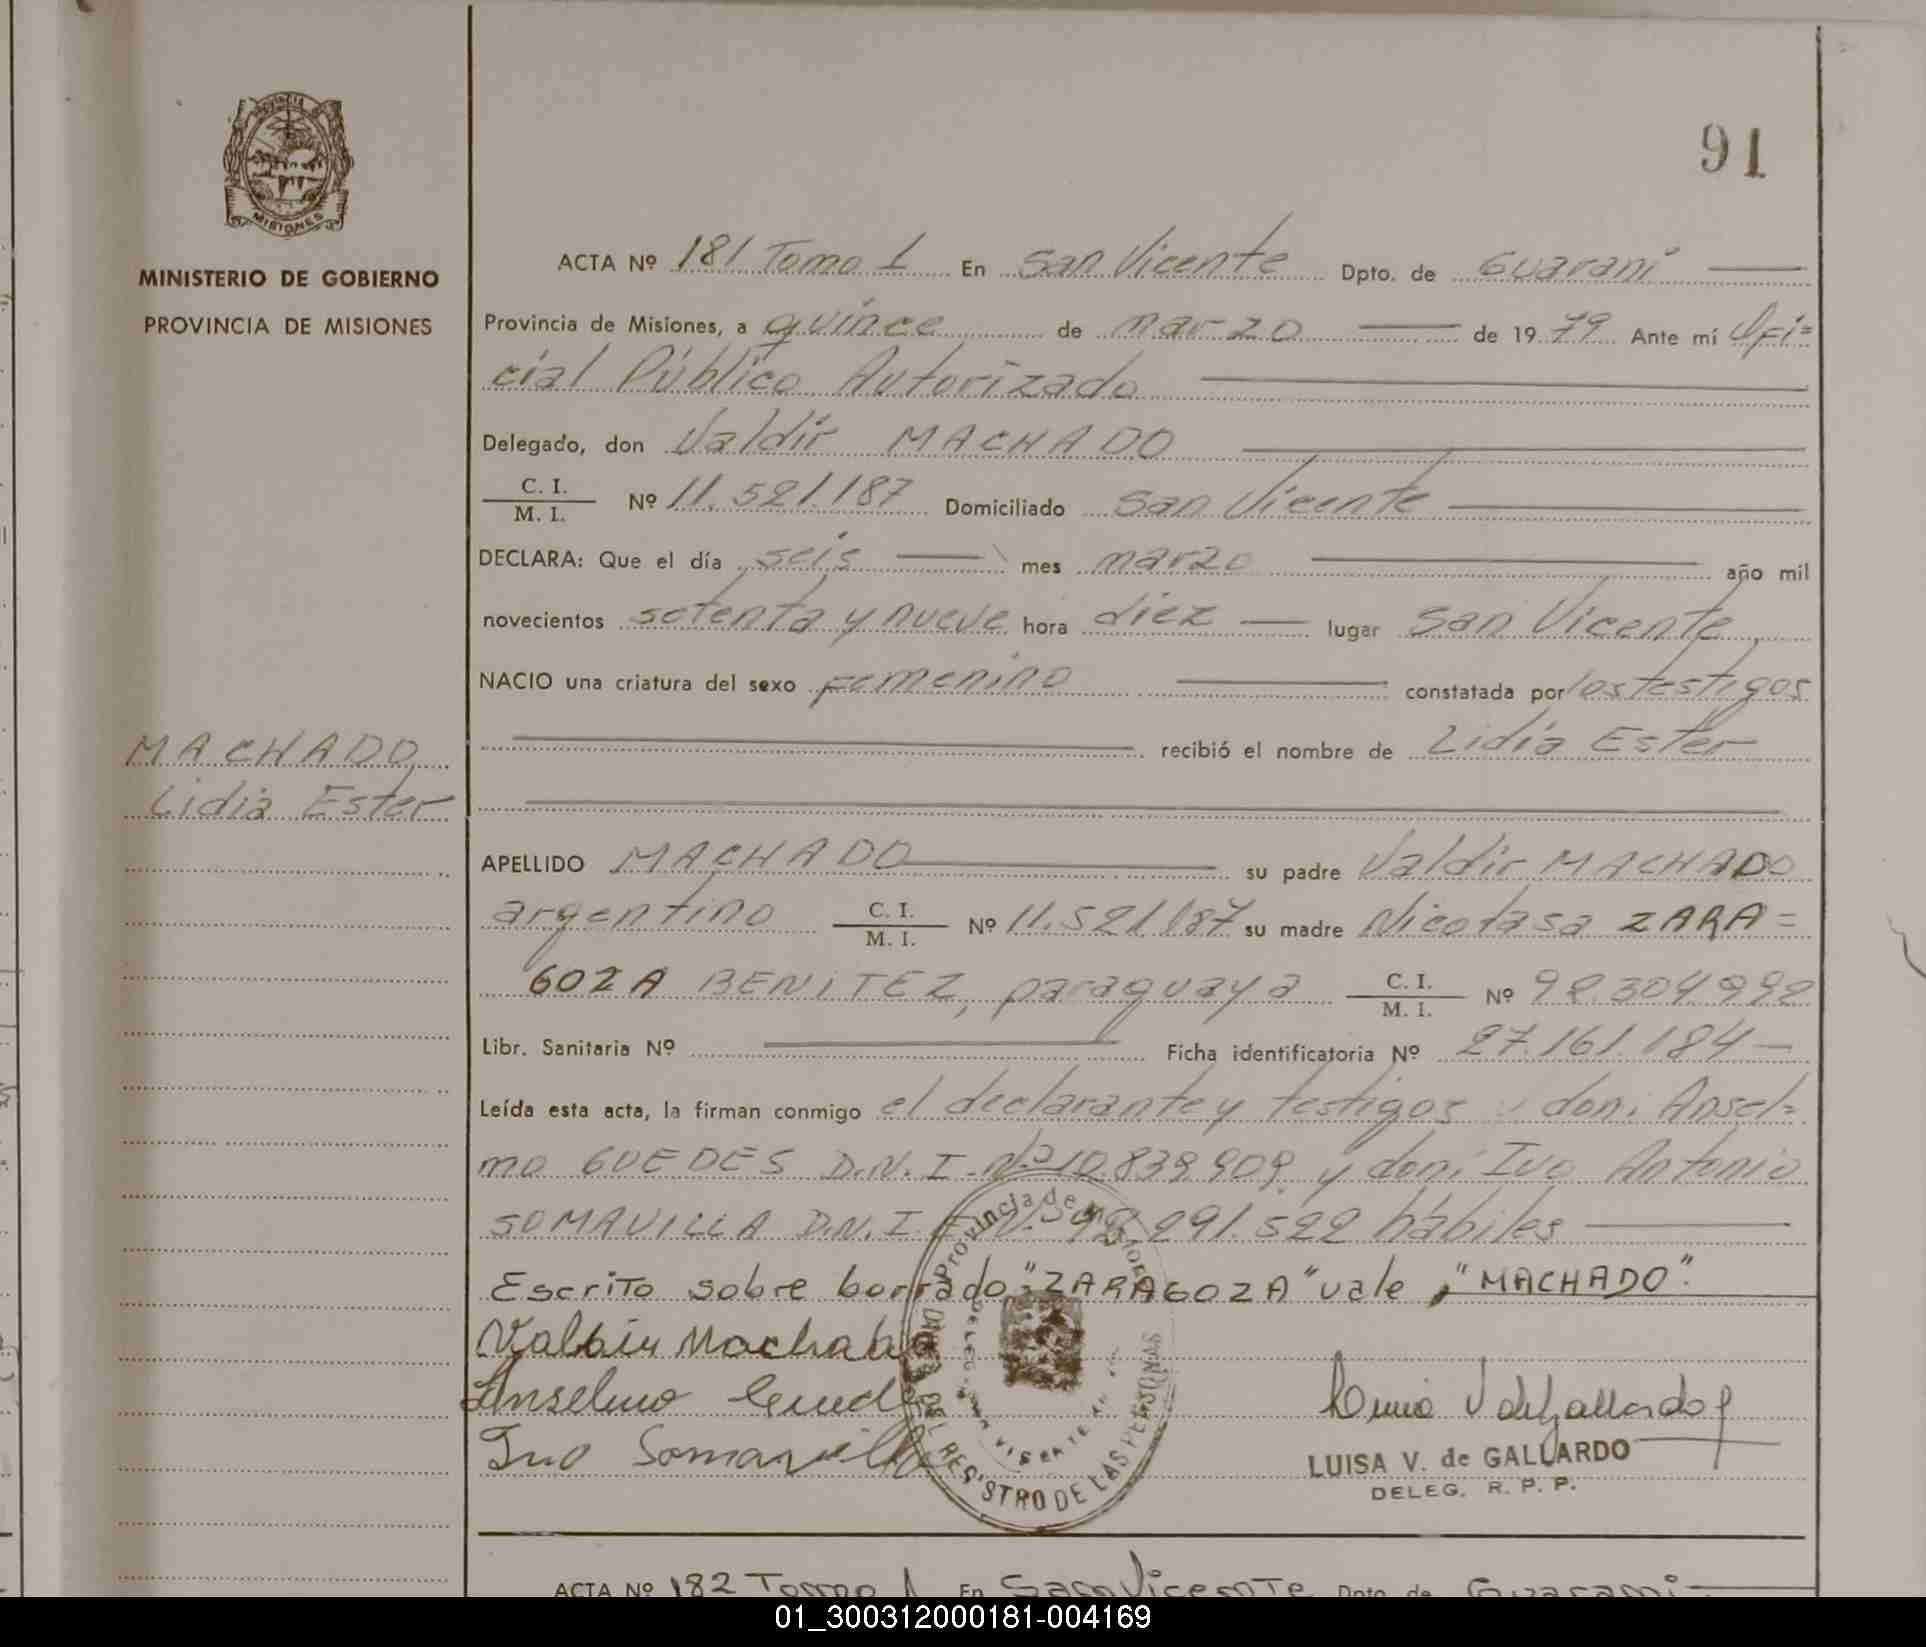 91
Provincia
MISIONES
MINISTERIO DE GOBIERNO
PROVINCIA DE MISIONES
MACHADO
Lidia Ester
ACTA Nº 181 Tomo 1 En San Vicente Dpto. de Guaraní
Provincia de Misiones, a quince de marzo de 1979 Ante mí Ofi=
cial Público Autorizado
Delegado, don Valdir MACHADO
C. I. / M. I. Nº 11.521.187 Domiciliado San Vicente
DECLARA: Que el día seis mes marzo año mil
novecientos setenta y nueve hora diez lugar San Vicente
NACIO una criatura del sexo Femenino constatada por los testigos
recibió el nombre de Lidia Ester
APELLIDO MACHADO su padre Valdir MACHADO
argentino C. I. / M. I. Nº 11.521.187 su madre Nicolasa ZARA=
GOZA BENITEZ, paraguaya C. I. / M. I. Nº 92.304.992
Libr. Sanitaria Nº Ficha identificatoria Nº 27.161.184
Leída esta acta, la firman conmigo el declarante y testigos don: Ansel=
mo GUEDES D.N.I. Nº 10.839.909 y don: Ivo Antonio
SOMAVILLA D.N.I. 291.522 hábiles
Escrito sobre borrado: "ZARAGOZA" vale, "MACHADO".
Valdir Machado
Anselmo Gued
Ivo Somavilla
Provincia de Misiones
DEL REGISTRO DE LAS PERSONAS
LUISA V. de GALLARDO
DELEG. R. P. P.
ACTA Nº 182 Tomo 1 En San Vicente Dpto. de Guaraní
01_300312000181-004169